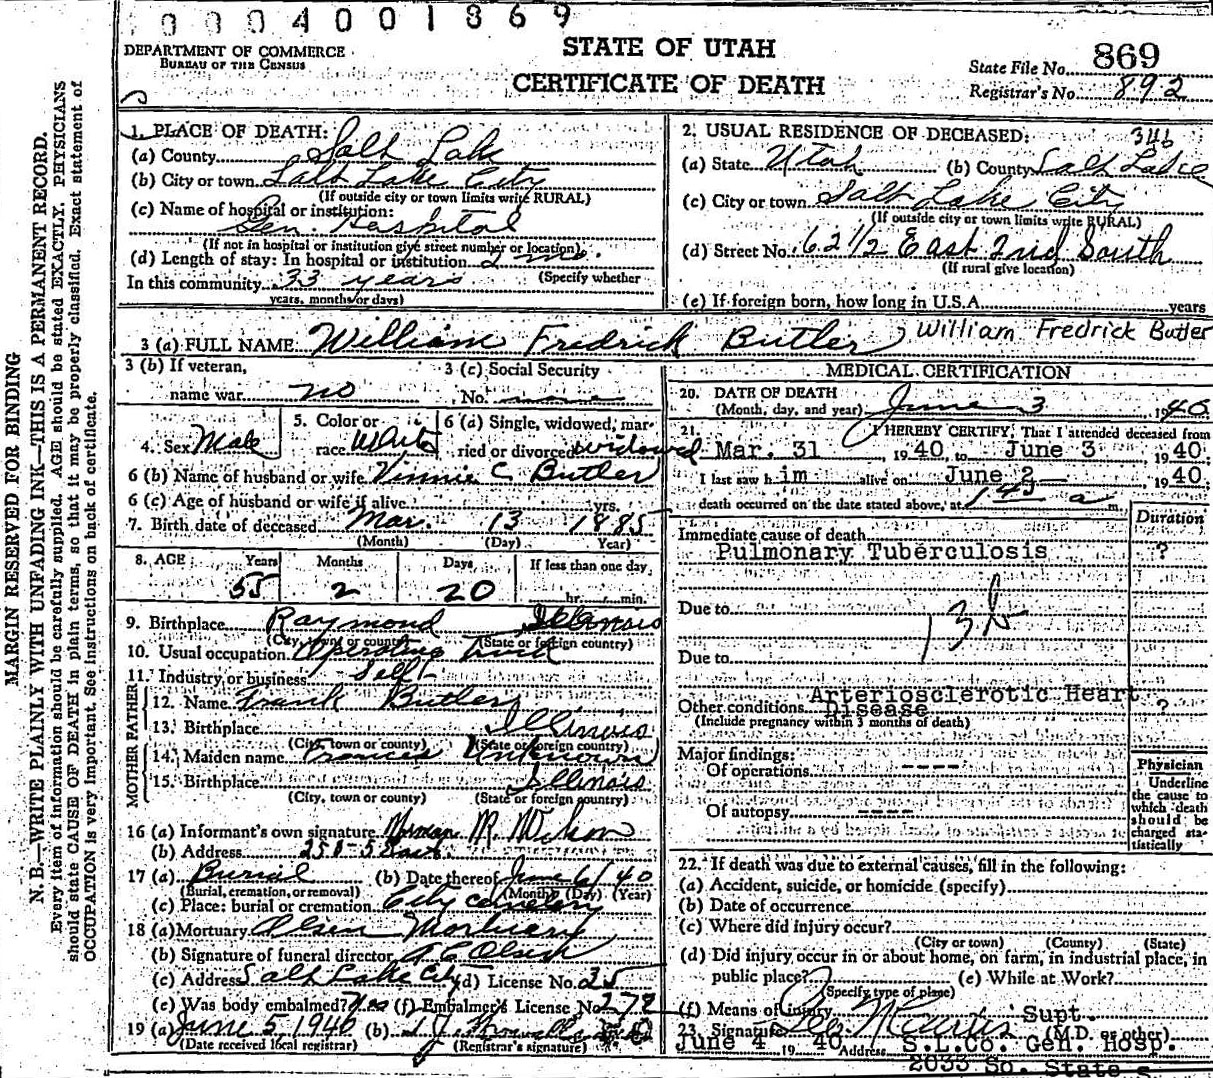 0004001869
DEPARTMENT OF COMMERCE
BUREAU OF THE CENSUS
STATE OF UTAH
CERTIFICATE OF DEATH
State File No. 869
Registrar's No. 892
MARGIN RESERVED FOR BINDING
N. B.—WRITE PLAINLY WITH UNFADING INK—THIS IS A PERMANENT RECORD.
Every item of information should be carefully supplied. AGE should be stated EXACTLY. PHYSICIANS
should state CAUSE OF DEATH in plain terms, so that it may be properly classified. Exact statement of
OCCUPATION is very important. See instructions on back of certificate.
1. PLACE OF DEATH:
(a) County Salt Lake
(b) City or town Salt Lake City
(If outside city or town limits write RURAL)
(c) Name of hospital or institution:
Gen. Hospital
(If not in hospital or institution give street number or location)
(d) Length of stay: In hospital or institution 2 mo.
In this community 33 years (Specify whether
years, months or days)
2. USUAL RESIDENCE OF DECEASED: 346
(a) State Utah (b) County Salt Lake
(c) City or town Salt Lake City
(If outside city or town limits write RURAL)
(d) Street No. 62 1/2 East 2nd South
(If rural give location)
(e) If foreign born, how long in U.S.A. years
3 (a) FULL NAME William Fredrick Butler William Fredrick Butler
3 (b) If veteran,
name war no
3 (c) Social Security
No. none
4. Sex Male
5. Color or
race White
6 (a) Single, widowed, mar-
ried or divorced widowed
6 (b) Name of husband or wife Vinnie C Butler
6 (c) Age of husband or wife if alive yrs.
7. Birth date of deceased Mar. 13 1885
(Month) (Day) Year)
8. AGE Years Months Days If less than one day
55 2 20 hr. min.
9. Birthplace Raymond Illinois
(City, town or county) (State or foreign country)
10. Usual occupation Operating Truck
11. Industry or business Self
FATHER
12. Name Frank Butler
13. Birthplace Illinois
(City, town or county) (State or foreign country)
MOTHER
14. Maiden name Frances Unknown
15. Birthplace Illinois
(City, town or county) (State or foreign country)
16 (a) Informant's own signature Norman M.
(b) Address 250-5 East
17 (a) Burial (b) Date thereof June 6/40
(Burial, cremation, or removal) (Month) (Day) (Year)
(c) Place: burial or cremation City cemetery
18 (a) Mortuary Olsen Mortuary
(b) Signature of funeral director A C Olsen
(c) Address Salt Lake City (d) License No. 35
(e) Was body embalmed? Yes (f) Embalmer's License No. 272
19 (a) June 5 1940 (b)
(Date received local registrar) (Registrar's signature)
MEDICAL CERTIFICATION
20. DATE OF DEATH
(Month, day, and year) June 3 1940
21. I HEREBY CERTIFY, That I attended deceased from
Mar. 31 1940, to June 3 1940.
I last saw him alive on June 2 1940.
death occurred on the date stated above, at 1 45 a m.
Duration
Immediate cause of death
Pulmonary Tuberculosis ?
Due to 13b
Due to
Arteriosclerotic Heart
Other conditions Disease ?
(Include pregnancy within 3 months of death)
Major findings:
Of operations ----
Of autopsy ----
Physician
Underline
the cause to
which death
should be
charged sta-
tistically
22. If death was due to external causes, fill in the following:
(a) Accident, suicide, or homicide (specify)
(b) Date of occurrence
(c) Where did injury occur?
(City or town) (County) (State)
(d) Did injury occur in or about home, on farm, in industrial place, in
public place? (e) While at Work?
(Specify type of place)
(f) Means of injury
Supt.
23. Signature (M.D. or other)
June 4 1940 Address S.L.Co. Gen. Hosp.
2033 So. State s